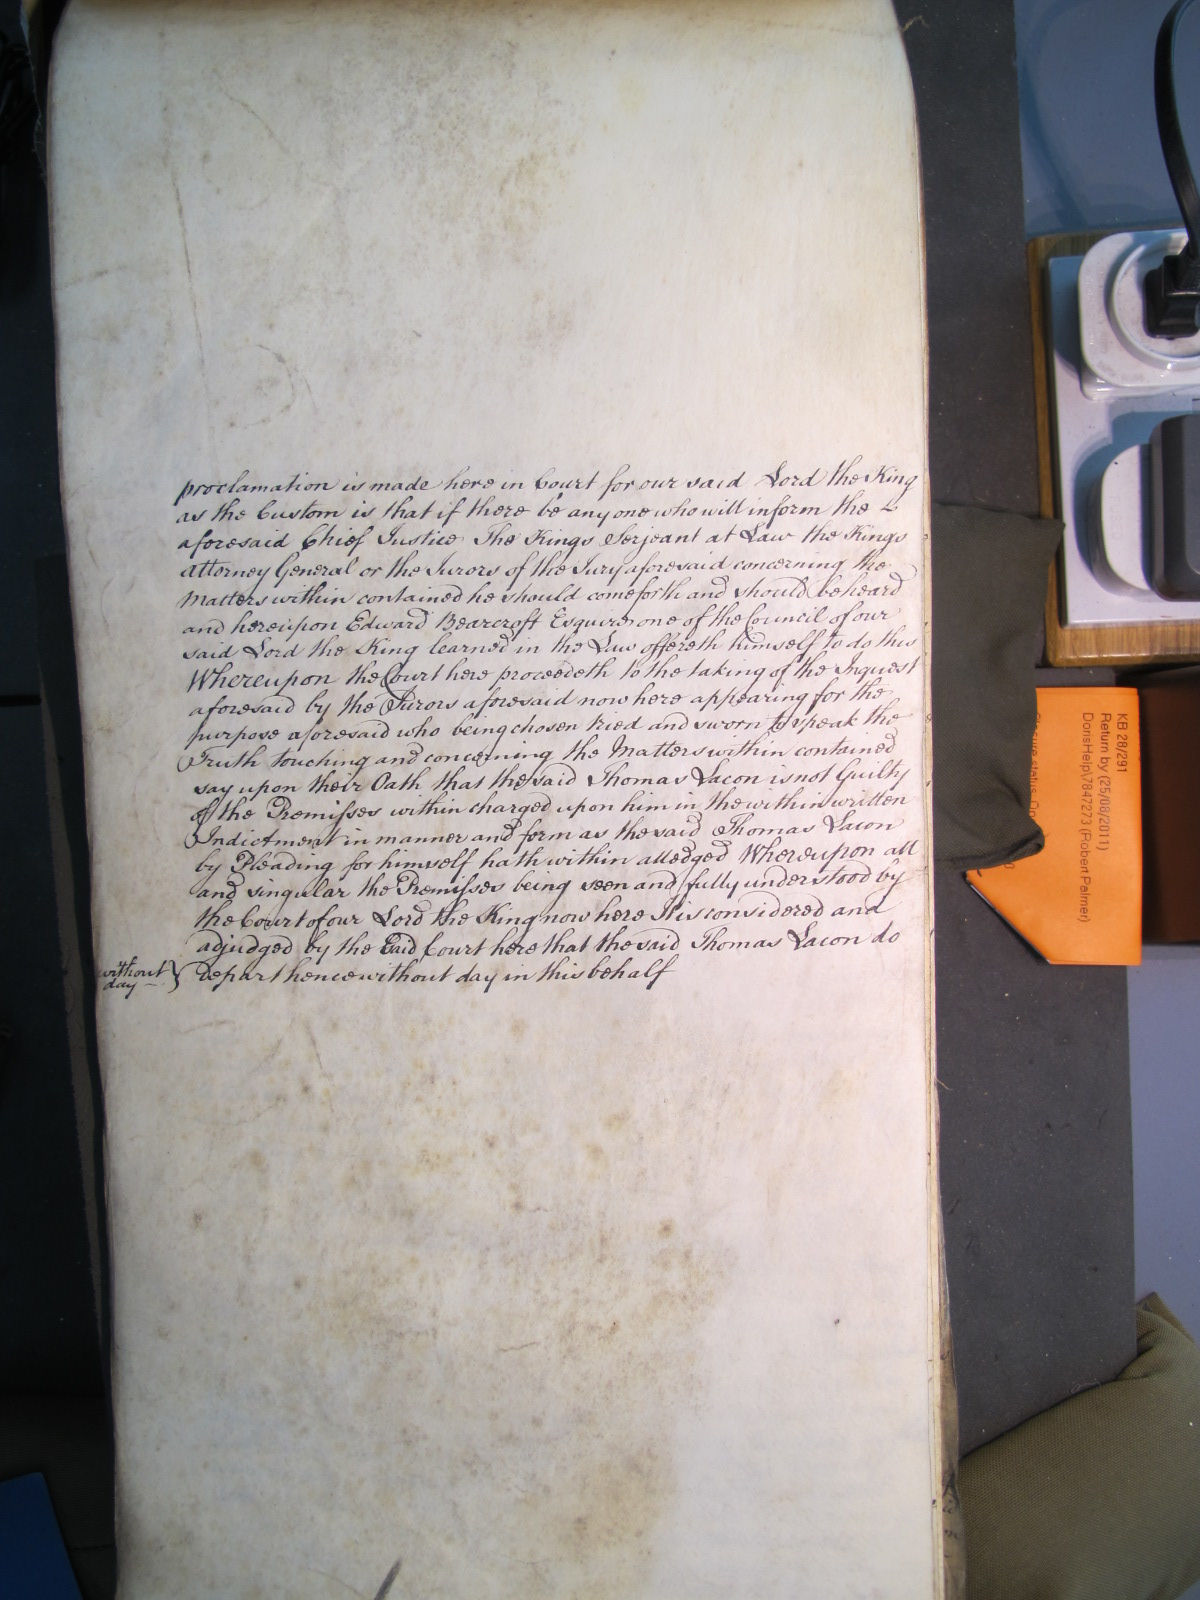 proclamation is made here in Court for our said Lord the King
as the Custom is that if there be any one who will inform the
aforesaid Chief Justice The Kings Serjeant at Law the Kings
attorney General or the Jurors of the Jury aforesaid concerning the
Matters within contained he should come forth and should be heard
and hereupon Edward Bearcroft Esquire one of the Council of our
said Lord the King learned in the Law offereth himself to do this
Whereupon the Court here proceedeth to the taking of the Inquest
aforesaid by the Jurors aforesaid now here appearing for the
purpose aforesaid who being chosen tried and sworn to speak the
Truth touching and concerning the Matters within contained
say upon their Oath that the said Thomas Lacon is not Guilty
of the Premisses within charged upon him in the within written
Indictment in manner and form as the said Thomas Lacon
by Pleading for himself hath within alledged Whereupon all
and singular the Premisses being seen and fully understood by
the Court of our Lord the King now here It is considered and
adjudged by the said Court here that the said Thomas Lacon do
depart hence without day in this behalf
without
day
KB 28/291
Return by (25/08/2011)
DorisHelp\7847273 (Robert Palmer)